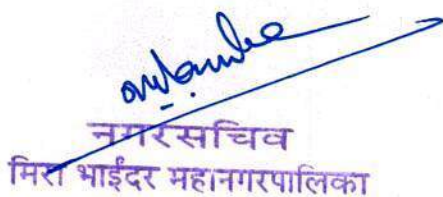 नगरसचिव
मिरा भाईंदर महानगरपालिका